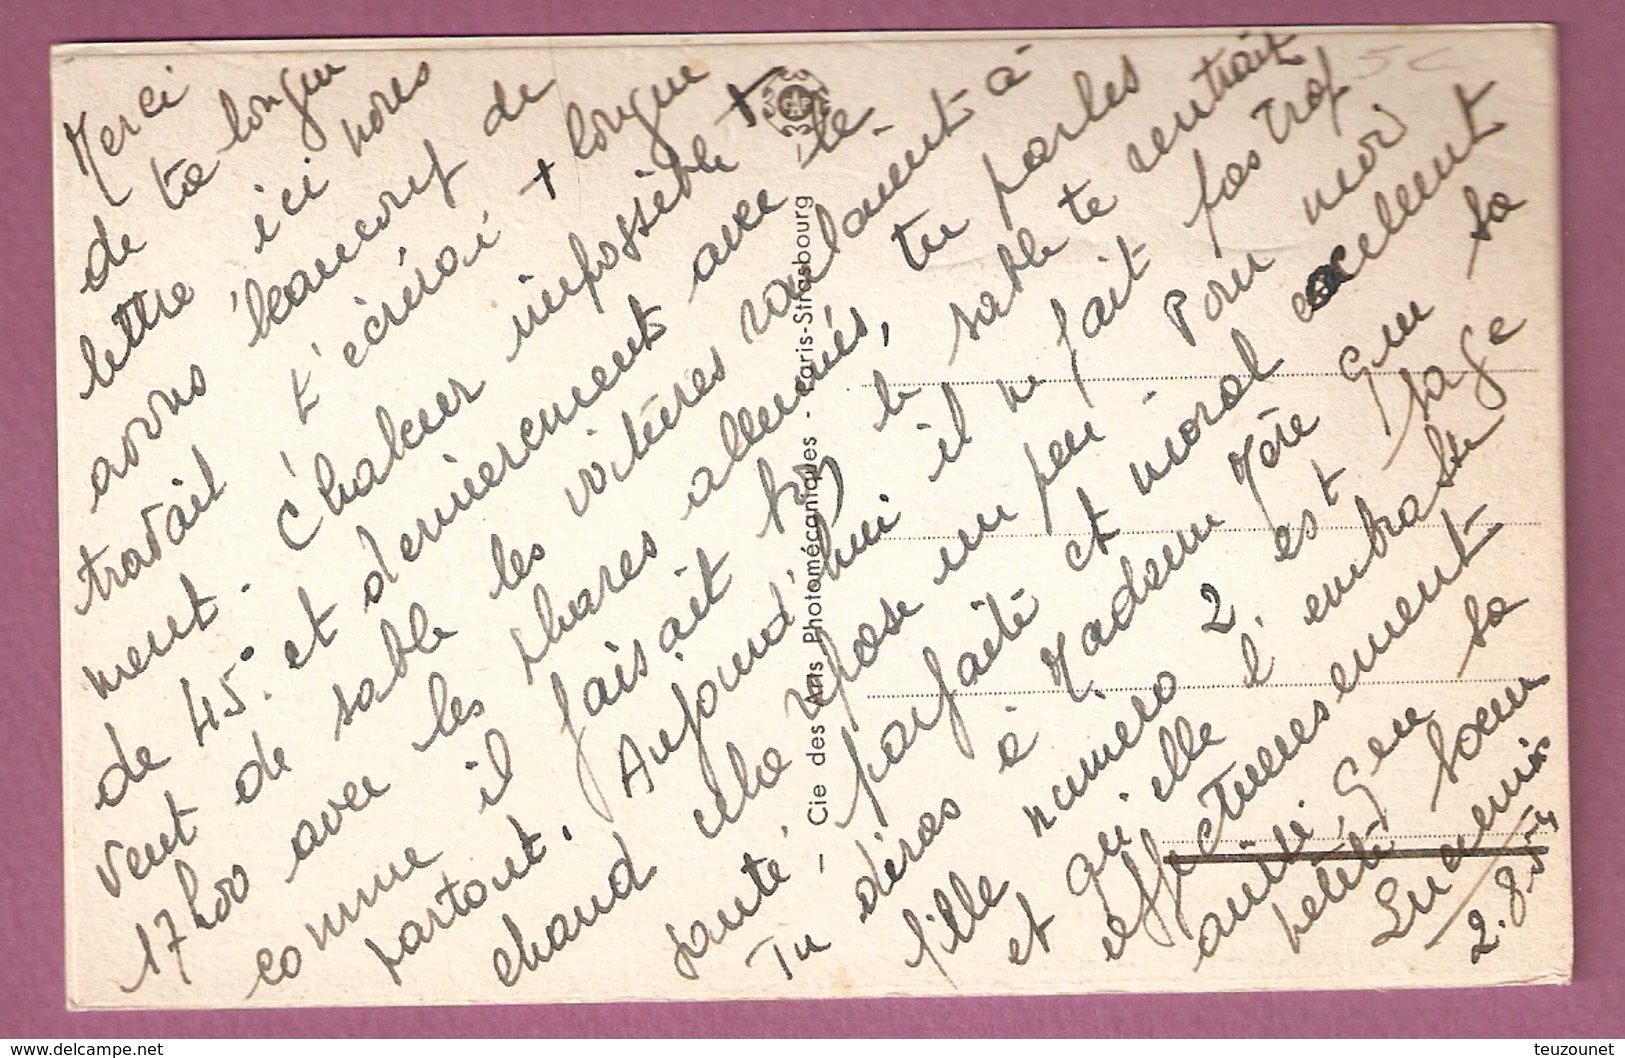 Merci
de ta longue
lettre ici nous
avons beaucoup de
travail t'écrirai + longue
ment. Chaleur impossible +
de 45°. et dernierement avec le
vent de sable les voitures roulaient à
17h00 avec les phares allumés, tu parles
comme il faisait bon le sable te rentrait
partout. Aujourd'hui il ne fait pas trop
chaud cela repose un peu Pour moi
santé parfaite et moral excellent
Tu diras à Madame Mère que sa
fille numéro 2 est sage
et qu'elle l'embrasse
affectueusement
ainsi que sa
petite soeur
2.8
— Cie des Arts Photomécaniques - Paris-Strasbourg
CAP
www.delcampe.net
teuzounet